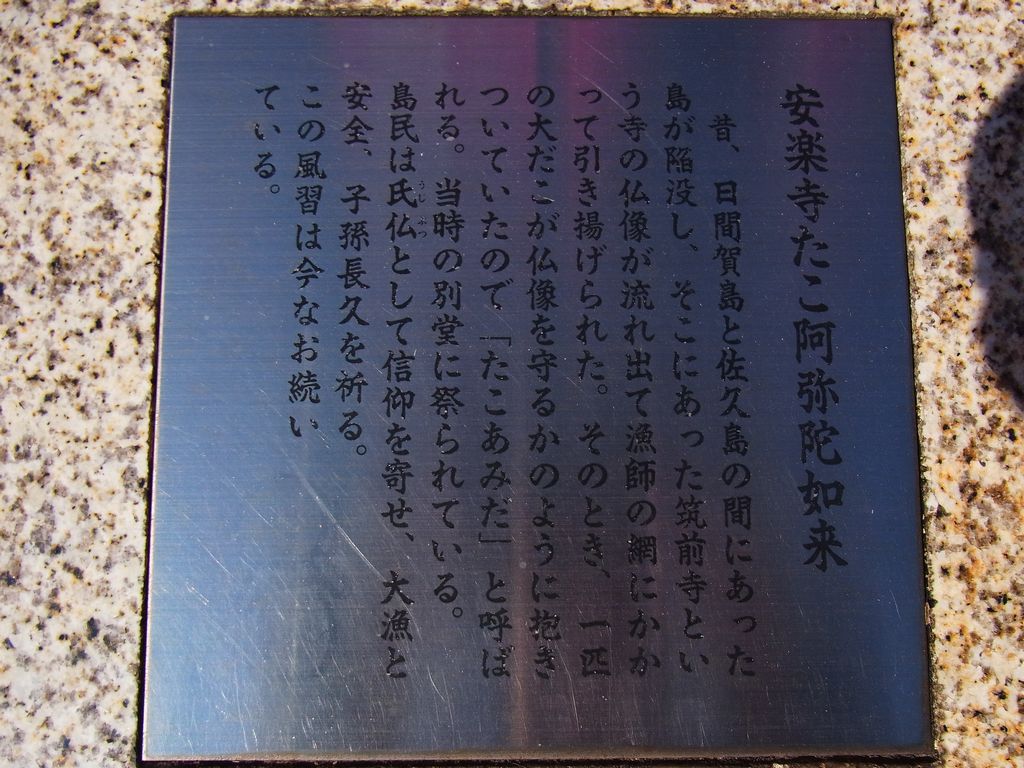 安楽寺たこ阿弥陀如来
昔、日間賀島と佐久島の間にあった
島が陥没し、そこにあった筑前寺とい
う寺の仏像が流れ出て漁師の網にかか
って引き揚げられた。そのとき、一匹
の大だこが仏像を守るかのように抱き
ついていたので「たこあみだ」と呼ば
れる。当時の別堂に祭られている。
島民は氏仏として信仰を寄せ、大漁と
うじぶつ
安全、子孫長久を祈る。
この風習は今なお続い
ている。